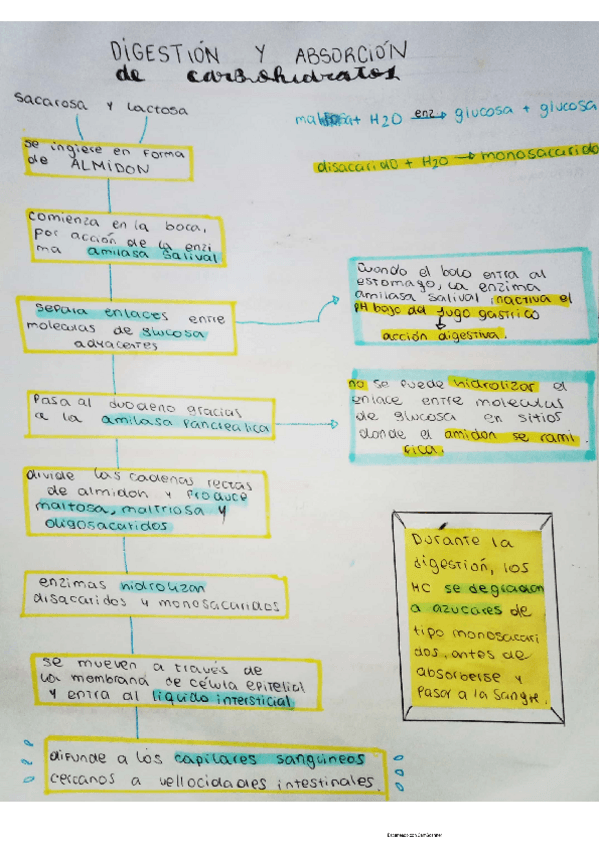 DIGESTIÓN Y ABSORCIÓN
de carbohidratos
sacarosa y lactosa
+ H2O enz glucosa + glucosa
disacarido + H2O monosacarido
se ingiere en forma
de ALMIDON
comienza en la boca,
por acción de la enzi
ma amilasa salival
separa enlaces entre
moleculas de glucosa
adyacentes
Cuando el bolo entra al
estomago, la enzima
amilasa salival inactiva el
pH bajo del jugo gastrico
acción digestiva.
Pasa al duodeno gracias
a la amilasa pancreática
no se puede hidrolizar el
enlace entre moleculas
de glucosa en sitios
donde el amidon se rami
fica.
divide las cadenas rectas
de almidon y produce
maltosa, maltriosa y
oligosacaridos
enzimas hidrolizan
disacaridos y monosacaridos
Durante la
digestión, los
HC se degradan
a azucares de
tipo monosacari
dos, antes de
absorberse y
Pasar a la sangre.
se mueven a través de
la membrana de célula epitelial
y entra al liquido intersticial
difunde a los capilares sanguineos
cercanos a vellocidades intestinales.
Escaneado con CamScanner